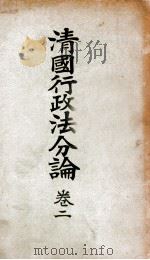 清國行政法分論
卷二
www.tushu007.com